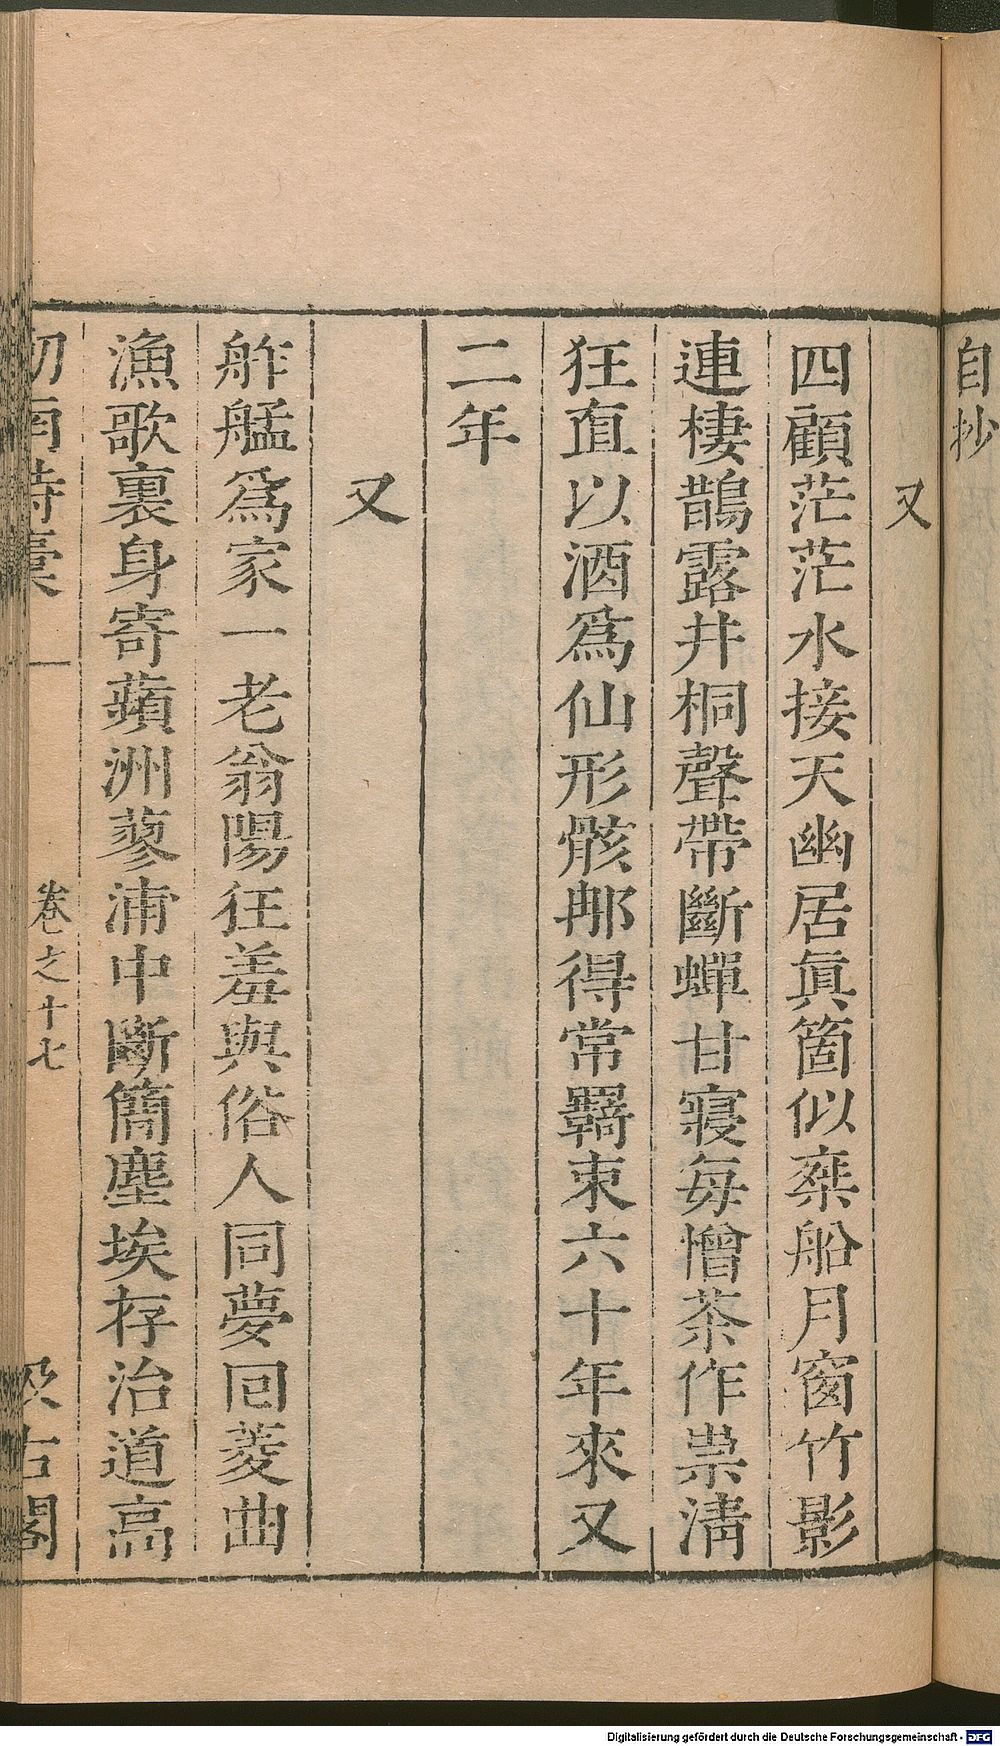 自抄
又
四顧茫茫水接天幽居眞箇似乗船月窗竹影
連棲鵲露井桐聲帶斷蟬甘寢每憎茶作祟淸
狂直以酒爲仙形骸那得常羈束六十年來又
二年
又
舴艋爲家一老翁陽狂羞與俗人同夢回菱曲
漁歌裏身寄蘋洲蓼浦中斷簡塵埃存治道高
劍南詩稾
卷之十七
汲古閣
Digitalisierung gefördert durch die Deutsche Forschungsgemeinschaft - DFG